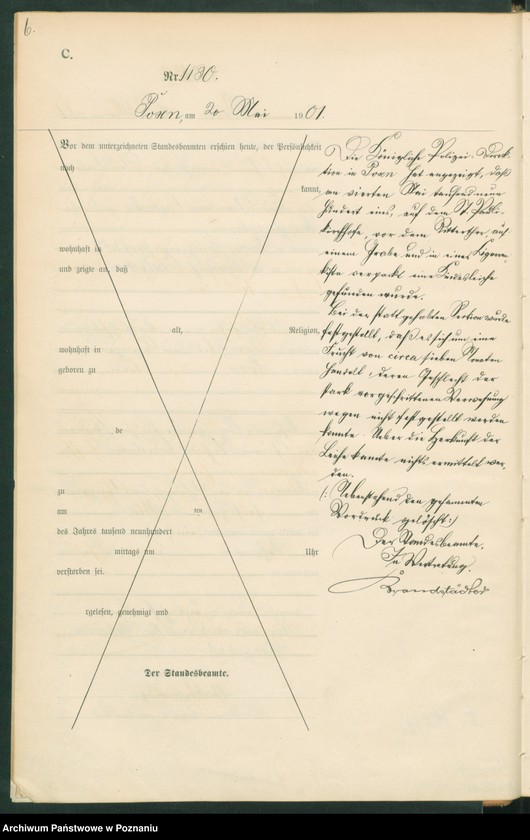 6.
C.
Nr. 1130.
Posen, am 20 Mai 1901.
Vor dem unterzeichneten Standesbeamten erschien heute, der Persönlichkeit
nach
kannt,
wohnhaft in
und zeigte an, daß
alt, Religion,
wohnhaft in
geboren zu
be
zu
am ten
des Jahres tausend neunhundert
mittags um Uhr
verstorben sei.
rgelesen, genehmigt und
Der Standesbeamte.
Die Königliche Polizei-Direk-
tion in Posen hat angezeigt, daß
am vierten Mai tausend neun
hundert eins, auf dem St. Pauli-
kirchhofe, vor dem Ritterthor, auf
einem Grabe und in einer Cigarren-
kiste verpackt eine Kindesleiche
gefunden wurde.
Bei der stattgehabten Section wurde
festgestellt, daß es sich um eine
Frucht von circa sieben Monaten
handelt, deren Geschlecht der
stark vorgeschrittenen Verwesung
wegen nicht festgestellt werden
konnte. Ueber die Herkunft der
Leiche konnte nichts ermittelt wer-
den.
/: Nebenstehend den gesammten
Vordruck gelöscht :/
Der Standesbeamte.
In Vertretung.
Brandstädter
Archiwum Państwowe w Poznaniu